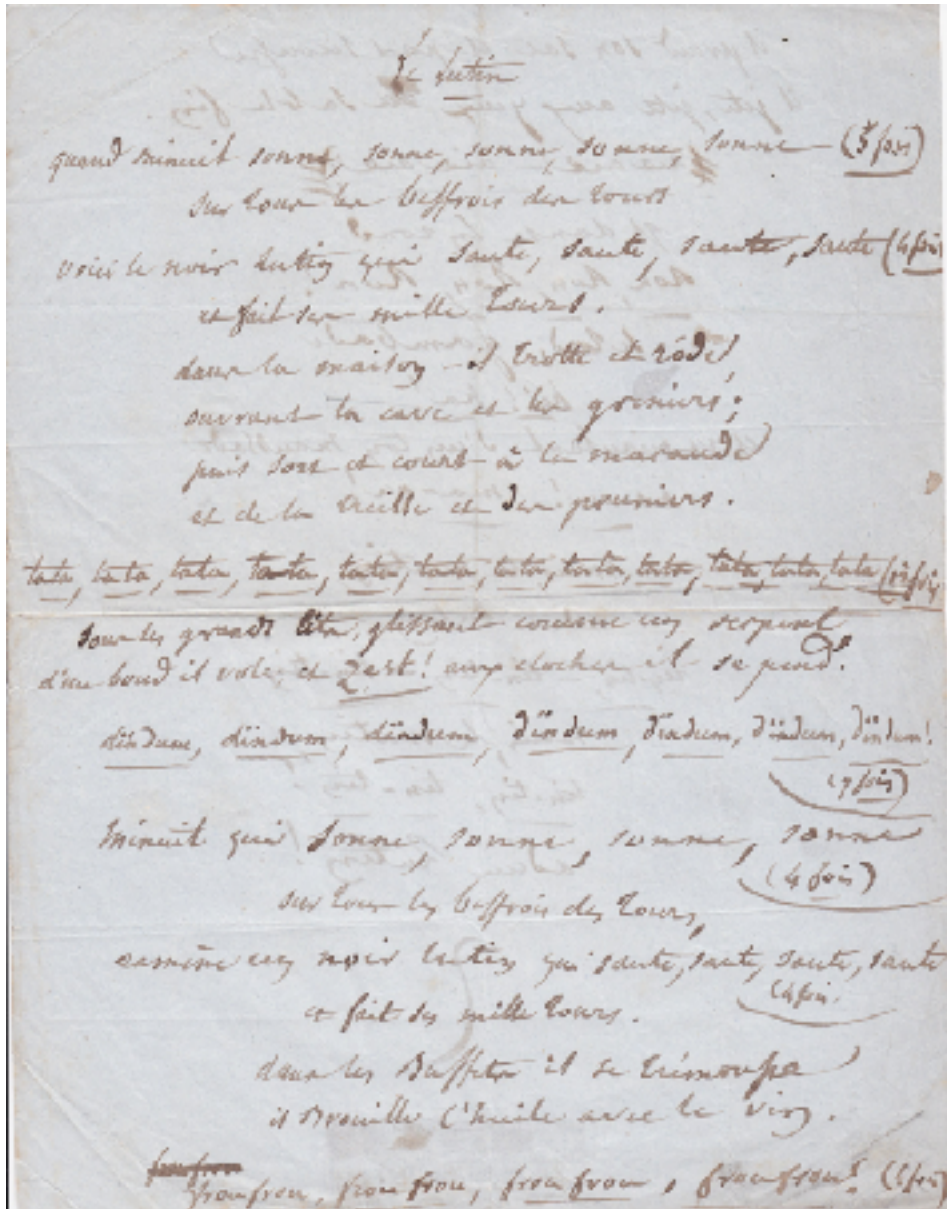 le lutin
quand minuit sonne, sonne, sonne, sonne, sonne (5 fois)
sur tous les beffrois des tours
voici le noir lutin qui saute, saute, saute, saute (4 fois
et fait ses mille tours.
dans la maison il trotte et rôde
ouvrant la cave et les greniers;
puis sort et court à la maraude
et de la treille et des pruniers.
tata, tata, tata, tata, tata, tata, tata, tata, tata, tata, tata, tata (12 fois
sous les grands lits, glissant comme un serpent
d'un bond il vole, et zest! aux clocher il se pend.
dindum, dindum, dindum, dindum, dindum, dindum, dindum!
(7 fois)
Minuit qui sonne, sonne, sonne, sonne
(4 fois)
sur tous les beffrois des tours,
ramène un noir lutin qui saute, saute, saute, saute
(4 fois.
et fait ses mille tours.
dans les Buffets il se trémousse
il Brouille l'huile avec le vin.
froufrou
froufrou, frou frou, froufrou, froufrou! (4 fois)